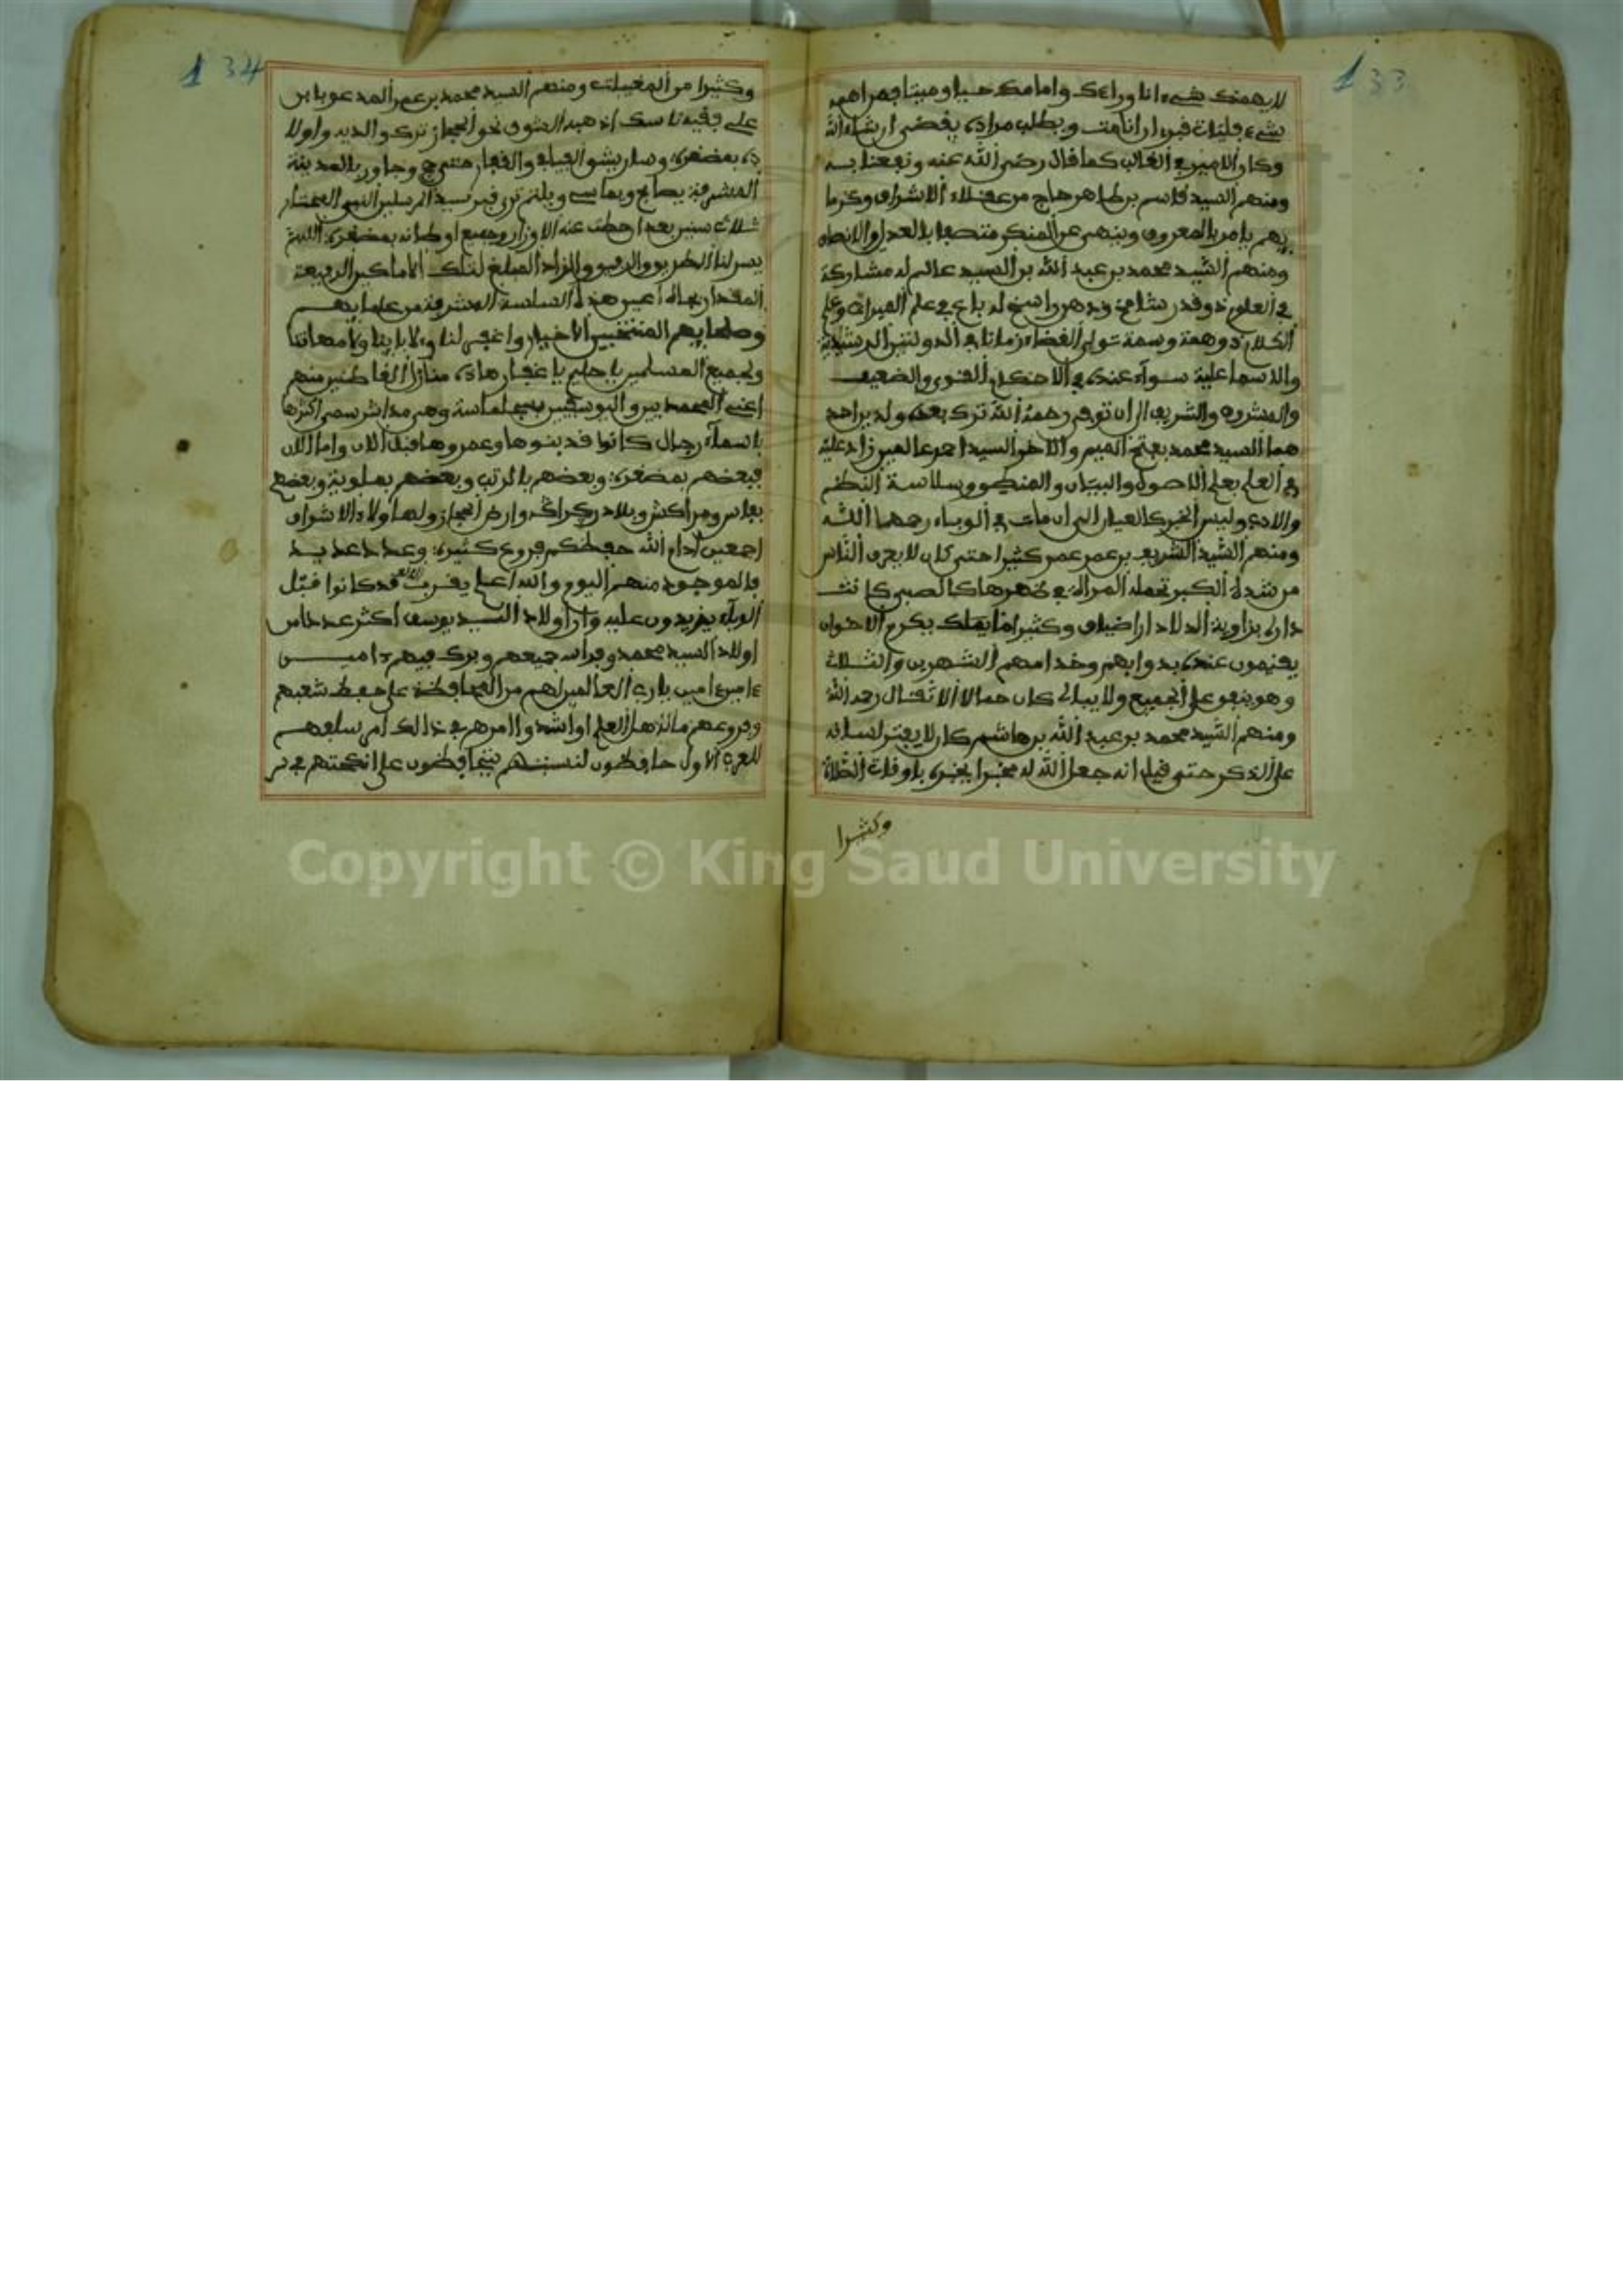 133
لا يهمنك شيء انا وراءك وامامك حيا وميتا فمن اهمه
شيء فليات قبري ان انا مت ويطلب مراده يقضى ان شاء الله
وكان الامير في الغالب كما قال رضي الله عنه ونفعنا به
ومنهم السيد قاسم بن طاهر حاج من عقلاء الاشراف وكرما
يهم يامر بالمعروف وينهى عن المنكر متصفا بالعدل والانصاف
ومنهم السيد محمد بن عبد الله بن السيد عالم له مشاركة
في العلوم ذو قدر شامخ وذهن راسخ له باع في علم الميراث وعلم
الكلام ذو همة وسمة تولى القضاء زمانا في الدولتين الرشيدية
والاسماعلية سواء عنده في الاحكام القوي والضعيف
والمشروف والشريف الى ان توفي رحمه الله ترك بعده ولدين احد
هما السيد محمد بفتح الميم والاخر السيد احمد عالمين زاد عليه
في العلم بعلم الاصول والبيان والمنطق وسلاسة النظم
والادب وليس الخبر كالعيان الى ان مات في الوباء رحمهما الله
ومنهم السيد الشريف بن عمر عمر كثيرا حتى كان لا يعرف الناس
من شدة الكبر تحمله المراة في ظهرها كالصبي كانت
داره بزاوية اضياف وكثيرا ما يملك يكرم الاخوان
يقيمون عنده بدوابهم وخدامهم الشهرين والثلاث
وهو ينفق على الجميع ولا يبالي كان حمالا الاثقال رحمه الله
ومنهم السيد محمد بن عبد الله بن هاشم كان لا يفتر لسانه
على الذكر حتى قيل انه جعل الله له مخبرا يخبره باوقات الصلاة
وكثيرا
134
وكثيرا من المغيبات ومنهم السيد محمد بن عمر المدعو بابن
علي فقيه ناسك اذهبه الشوق نحو الحجاز ترك والديه واولا
ده بمضغرة وسار يشق الفيافي والقفار حتى حج وجاور بالمدينة
المشرفة يصابح ويماسي ويلتزم قبر سيد المرسلين النبي المختار
ثلاث سنين بعد ان حطت عنه الاوزار وجميع اوطانه بمضغرة اللهم
يسر لنا الطريق والرفيق والزاد المبلغ لتلك الاماكن الرفيعة
المقدار بجاه اعين هذه السلسة المشرفة من علمايهم
وصلحايهم المنتخبين الاخيار واغفر لنا ولابائنا ولامهاتنا
ولجميع المسلمين يا حليم يا غفار هاذه منازل القاطنين منهم
اعني المحمديين واليوسفيين بسجلماسة وهي مداشر سمي اكثرها
باسماء رجال كانوا قد بنوها وعمروها قبل الان واما الان
فبعضهم بمضغرة وبعضهم بالرتب وبعضهم بملوية وبعضهم
بفاس ومراكش وبلاد وارض الحجاز ولهاولاء الاشراف
اجمعين ادام الله حفظكم فروع كثيرة وعدد عديد
فالموجود منهم اليوم والله اعلم يقرب قد كانوا قبل
الوباء يزيدون عليه وان اولاد السيد يوسف اكثر عددا من
اولاد السيد محمد وفر الله جميعهم وبرك فيهم ءامين
ءامين ءامين يا رب العالمين لهم من المحافظة على حفظ شعبهم
وفروعهم ما لاهل العلم او اشد والامر هم في ذالك امر سلفهم
للعرب الاول حافظون لنسبتهم يتحافظون على انكحتهم في